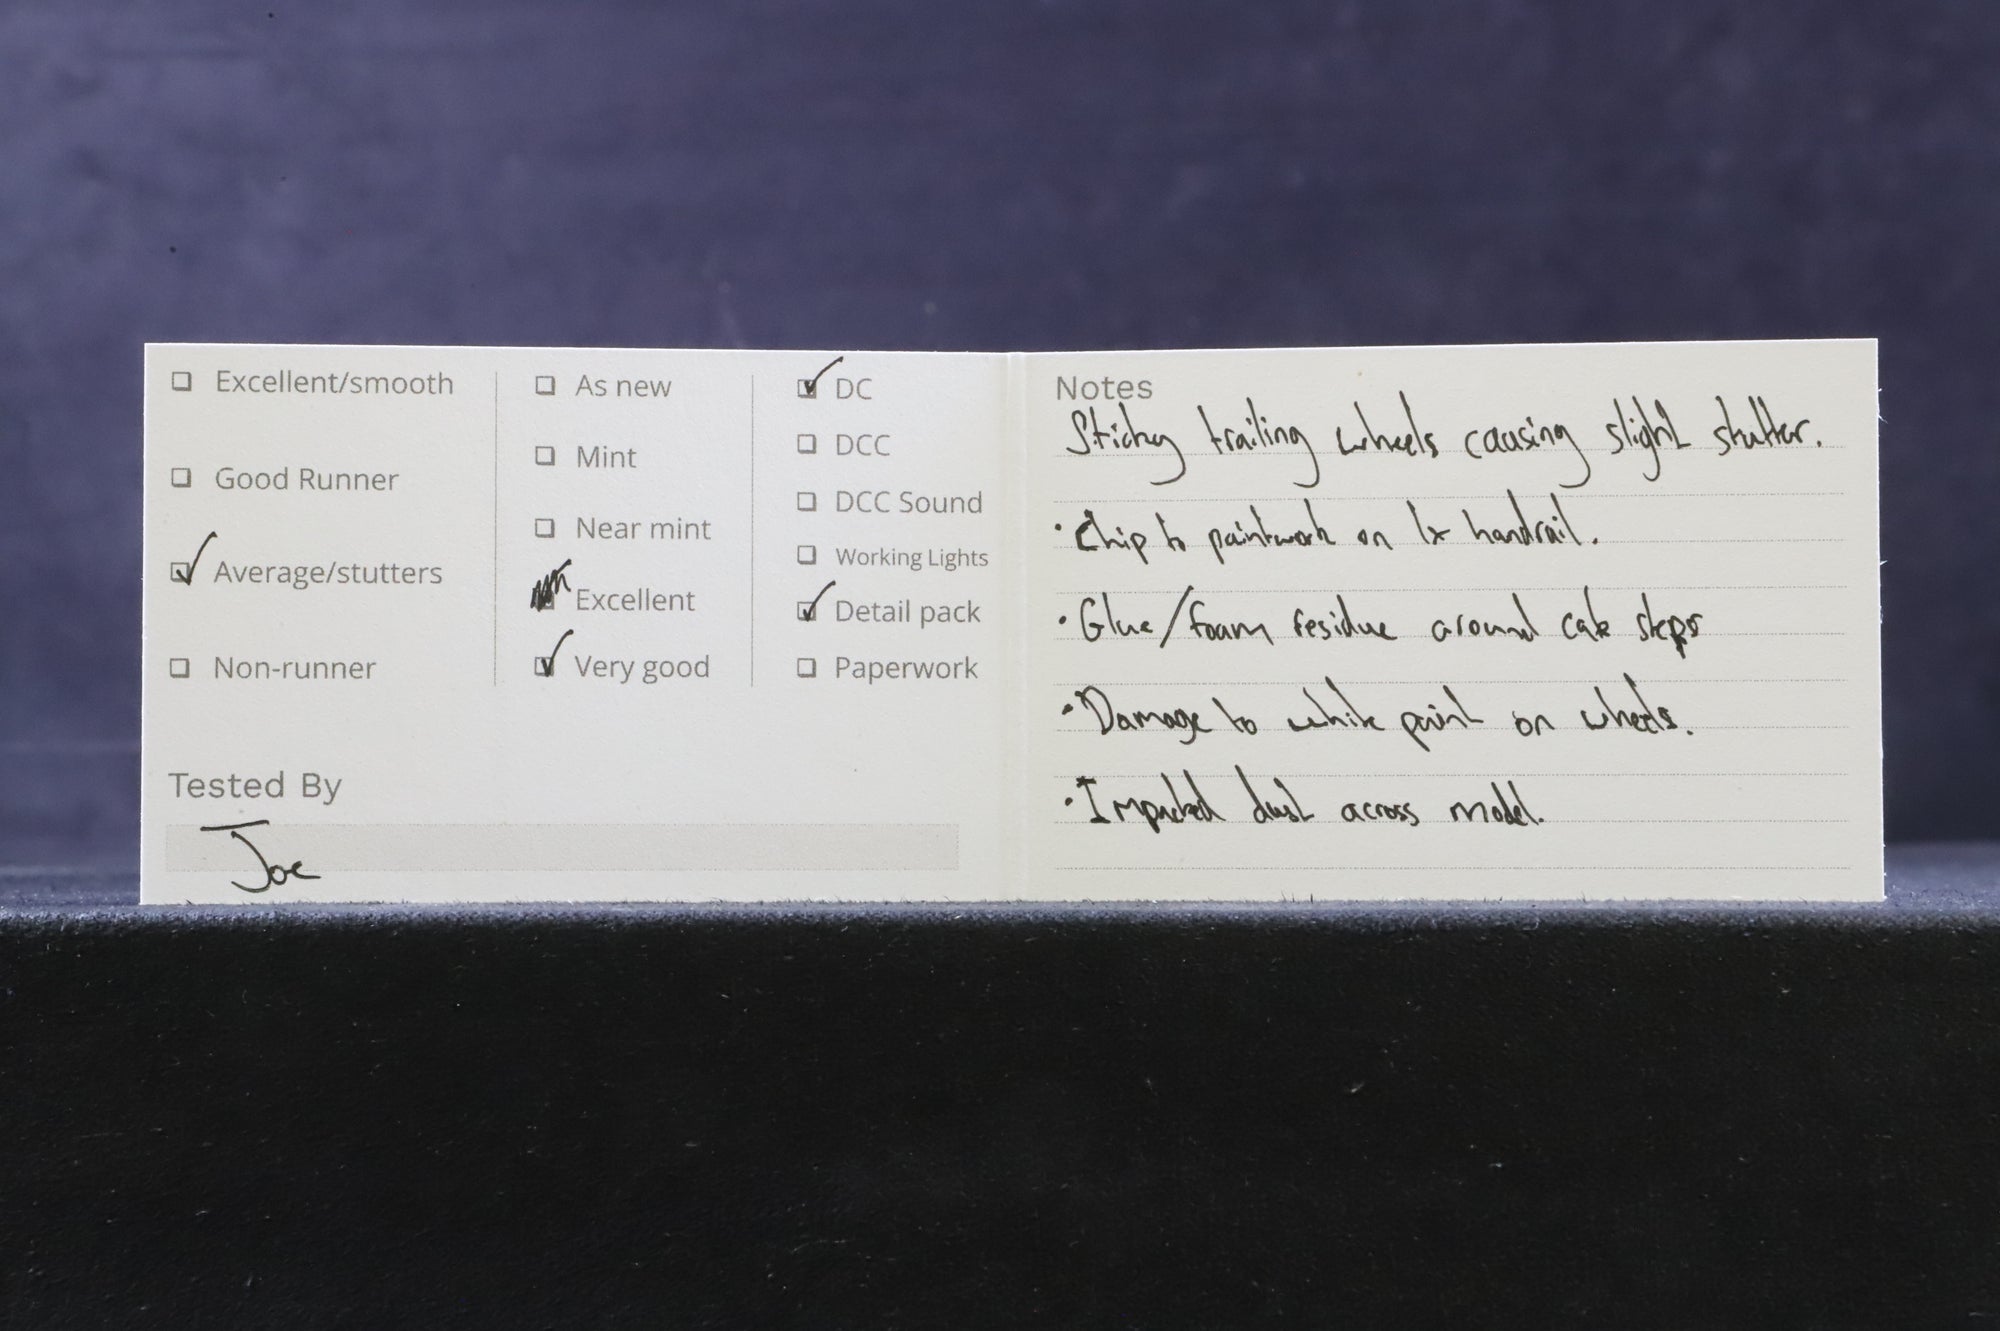 Excellent/smooth
Good Runner
Average/stutters
Non-runner
As new
Mint
Near mint
Excellent
Very good
DC
DCC
DCC Sound
Working Lights
Detail pack
Paperwork
Tested By
Joe
Notes
Sticky trailing wheels causing slight stutter.
· Chip to paintwork on 1x handrail.
· Glue/foam residue around cab steps
· Damage to white paint on wheels.
· Impacted dust across model.